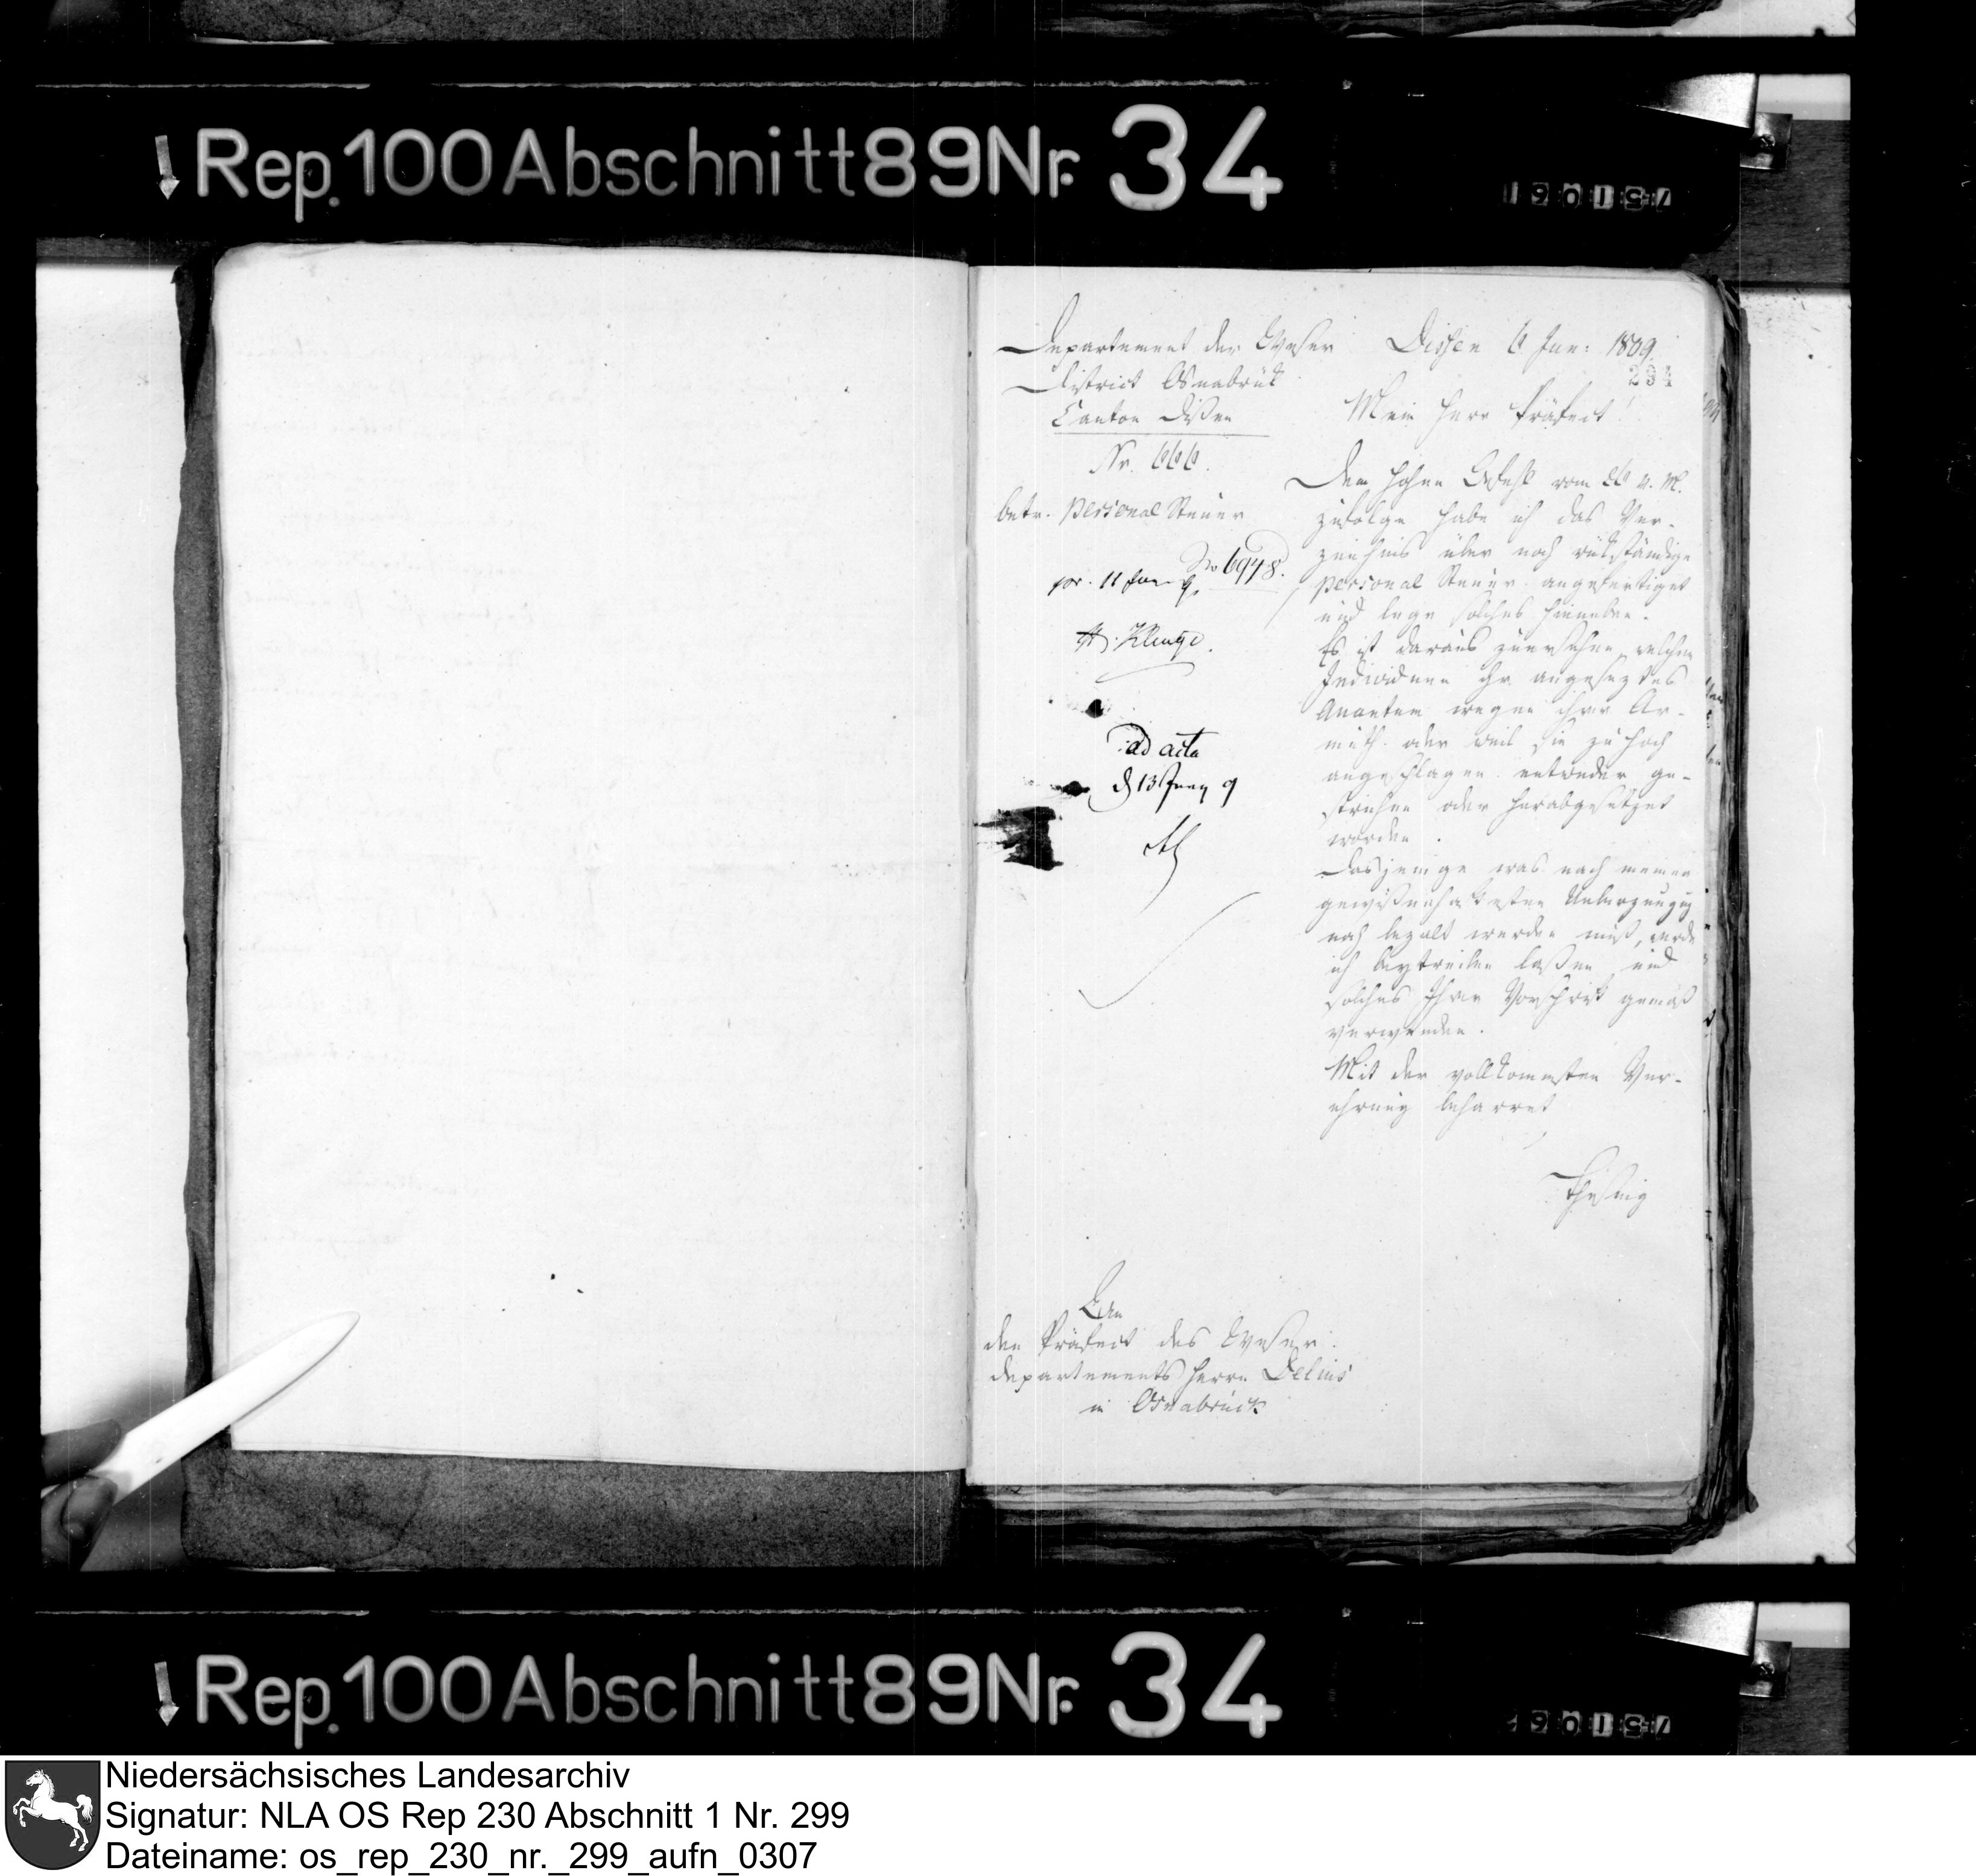 Rep. 100 Abschnitt 89 Nr. 34
Departement der Weser
District Osnabrük
Canton Dißen
Nr. 666.
betr. Personal Steuer
No 6948.
pr. 11 Jun 9
H. Kluge.
ad acta
d 13 Juny 9
Dissen 6 Jun: 1809.
294
Mein Herr Präfect!
Dem hohen Befehl vom 26 v. M.
zufolge habe ich das Ver-
zeichnis über noch rükständige
Personal Steuer angefertiget
und lege solches hieneben.
Es ist daraus zuersehen, welchen
Individuen ihr angeseztes
Quantum wegen ihrer Ar-
muth oder weil sie zu hoch
angeschlagen entweder ge-
strichen oder herabgesetzet
worden.
Dasjenige was nach meiner
gewißenhaftesten Ueberzeugug
noch bezalt werden muß, werde
ich beytreiben laßen und
solches Ihrer Vorschrift gemäß
verwenden.
Mit der vollkommsten Ver-
ehrung beharret
An
den Präfect des Weser
departements Herrn Delius
in Osnabrück
Rep. 100 Abschnitt 89 Nr. 34
Niedersächsisches Landesarchiv
Signatur: NLA OS Rep 230 Abschnitt 1 Nr. 299
Dateiname: os_rep_230_nr._299_aufn_0307